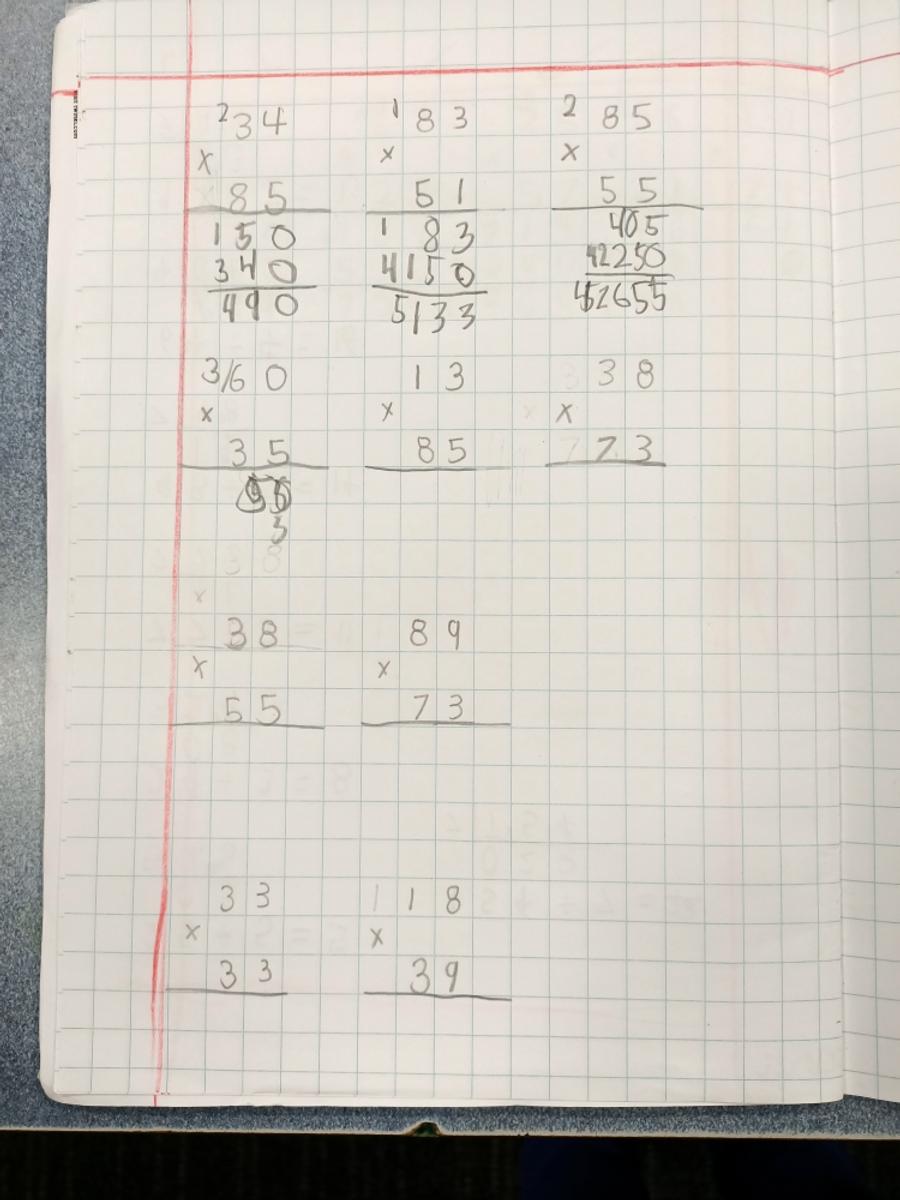 2 34 1 83 2 85
x x x
85 51 55
150 1 83 405
340 4150 42250
490 5133 42655
3/60 13 38
x x x
35 85 73
3
38 89
x x
55 73
33 118
x x
33 39